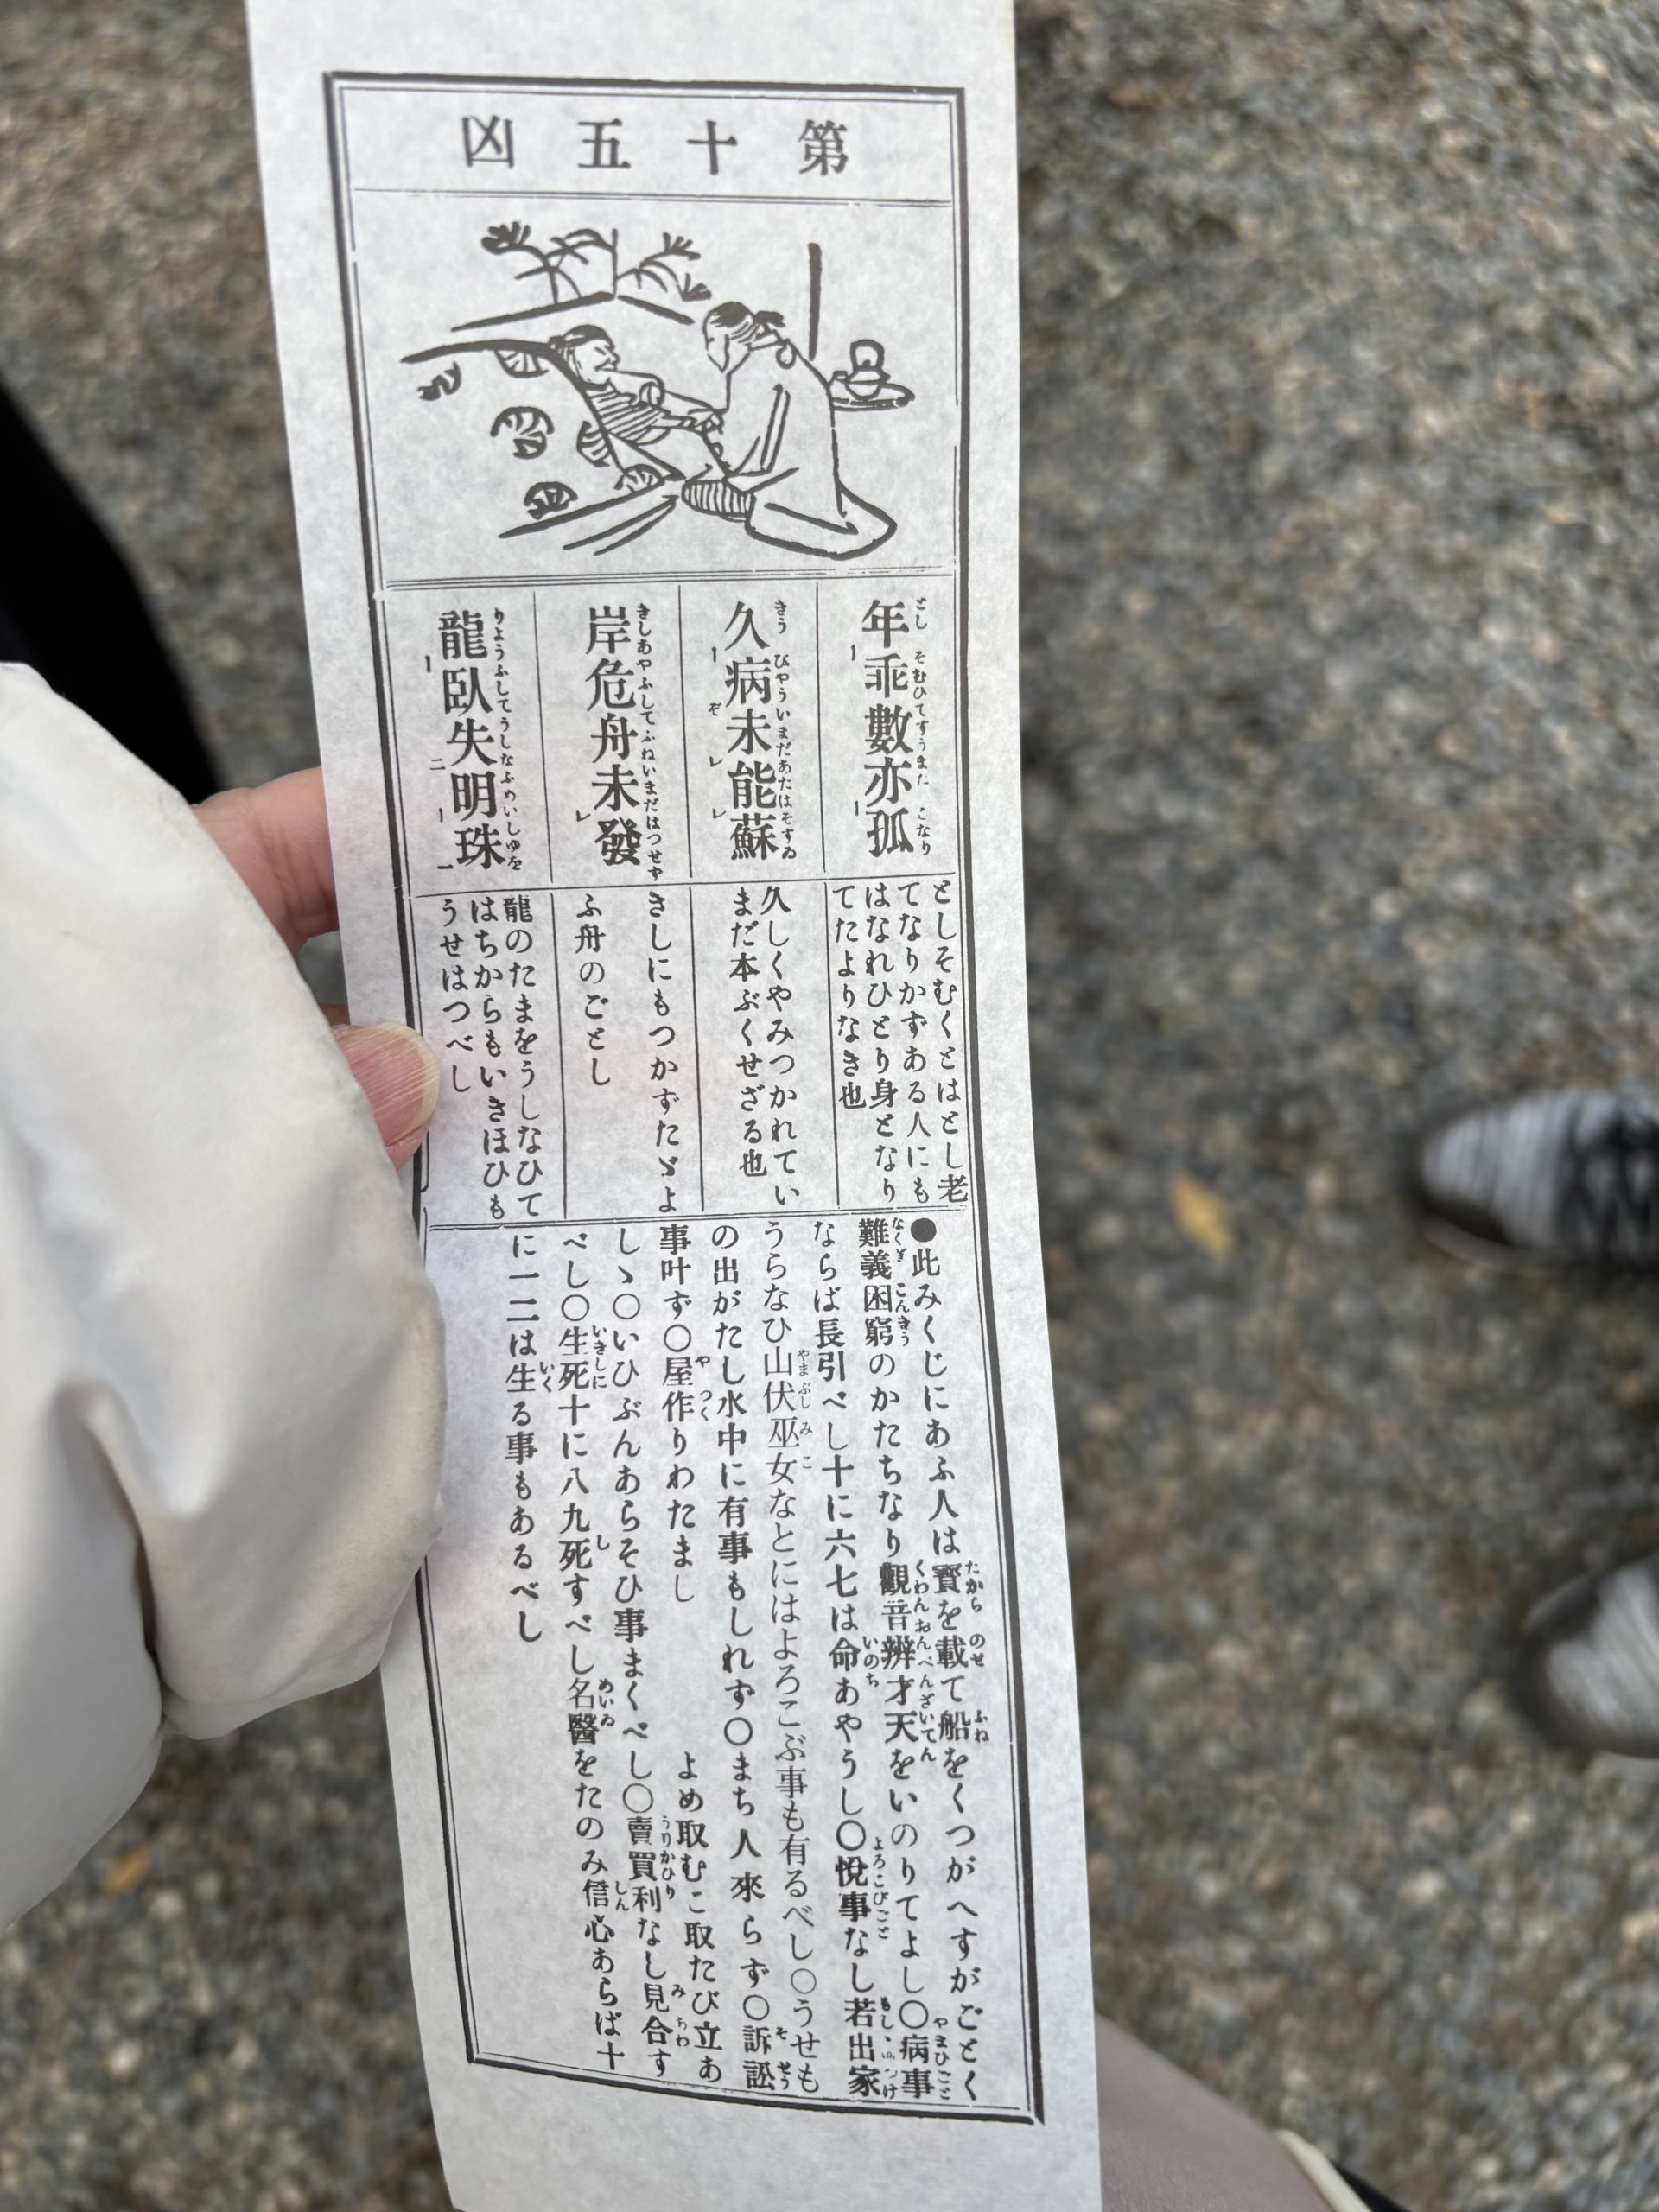 第十五凶
年乖數亦孤
としそむくとはとし老
てなりかずある人にも
はなれひとり身となり
てたよりなき也
久病未能蘇
久しくやみつかれてい
まだ本ぶくせざる也
岸危舟未發
きしにもつかずたゞよ
ふ舟のごとし
龍臥失明珠
龍のたまをうしなひて
はちからもいきほひも
うせはつべし
●此みくじにあふ人は寳を載て船をくつがへすがごとく
難義困窮のかたちなり觀音辨才天をいのりてよし〇病事
ならば長引べし十に六七は命あやうし〇悅事なし若出家
うらなひ山伏巫女なとにはよろこぶ事も有るべし〇うせも
の出がたし水中に有事もしれず〇まち人來らず〇訴訟
事叶ず〇屋作りわたまし よめ取むこ取たび立あ
しゝ〇いひぶんあらそひ事まくべし〇賣買利なし見合す
べし〇生死十に八九死すべし名醫をたのみ信心あらば十
に一二は生る事もあるべし